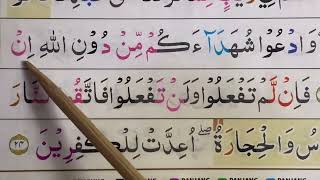 وَادْعُوْا شُهَدَاۤءَكُمْ مِّنْ دُوْنِ اللّٰهِ اِنْ
فَاِنْ لَّمْ تَفْعَلُوْا وَلَنْ تَفْعَلُوْا فَاتَّقُوا النَّارَ
سُ وَالْحِجَارَةُ ۖ اُعِدَّتْ لِلْكٰفِرِيْنَ ٢٤